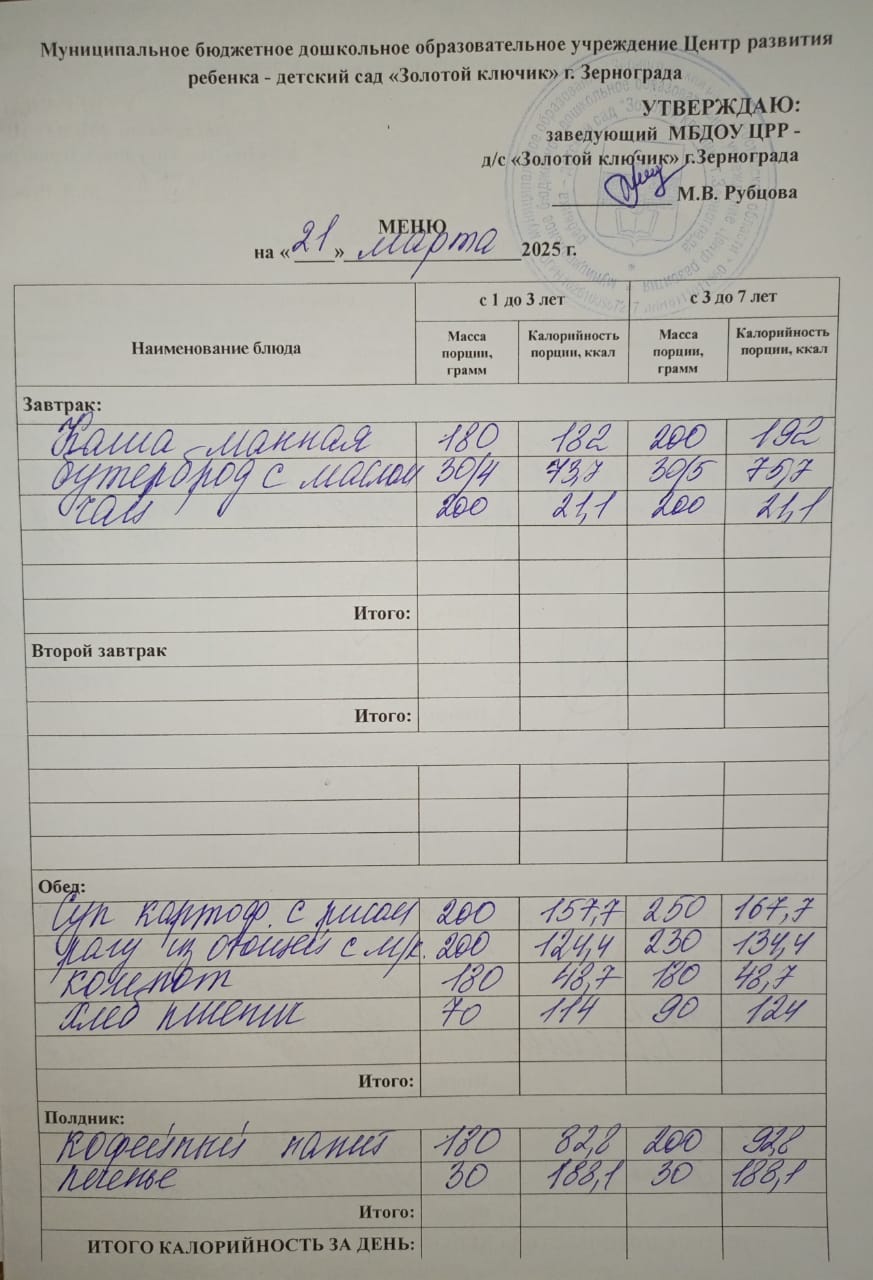 Муниципальное бюджетное дошкольное образовательное учреждение Центр развития
ребенка - детский сад «Золотой ключик» г. Зернограда
УТВЕРЖДАЮ:
заведующий МБДОУ ЦРР -
д/с «Золотой ключик» г.Зернограда
М.В. Рубцова
МЕНЮ
на «21» марта 2025 г.
Наименование блюда
с 1 до 3 лет с 3 до 7 лет
Масса порции, грамм Калорийность порции, ккал Масса порции, грамм Калорийность порции, ккал
Завтрак:
Каша манная 180 182 200 192
бутерброд с маслом 30/4 73,7 30/5 75,7
чай 200 21,1 200 21,1
Итого:
Второй завтрак
Итого:
Обед:
Суп картоф. с рисом 200 157,7 250 167,7
рагу из овощей с м/к. 200 124,4 230 134,4
компот 180 48,7 180 48,7
хлеб пшенич 70 114 90 124
Итого:
Полдник:
кофейный напит 180 82,8 200 92,8
печенье 30 188,1 30 188,1
Итого:
ИТОГО КАЛОРИЙНОСТЬ ЗА ДЕНЬ: